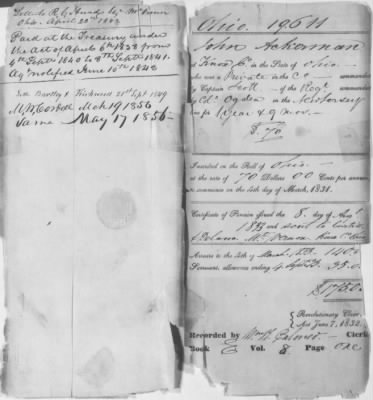 Letter to R. C. Hurd Esqr. Mt. Vernon
Ohio. April 20th 1842
Paid at the Treasury under
the Act of April 6th 1838 from
4th Septr 1840 to 4th Septr 1841.
Agt notified June 10th 1842
See Bartley & Kirkwood 21st Sept 1849
M. H. Corbett Mch 19 1856
Same May 17 1856
Ohio. 19,611
John Ackerman
of Knox Co. in the State of Ohio
who was a Private in the Co. commanded
by Captain Scott of the Regt. commanded
by Col. Ogden in the New Jersey
for 1 year & 9 mos.
$ 70
Inscribed on the Roll of Ohio
at the rate of 70 Dollars 00 Cents per annum
to commence on the 4th day of March, 1831.
Certificate of Pension issued the 8. day of Augt
1833 and sent to
Delano Mt. Vernon Knox Co. Ohio
Arrears to the 4th of March 1833 140.
Semi-anl. allowance ending 4 Sept 33 35.0
$175.0
Revolutionary Claim,
Act June 7, 1832.
Recorded by Clerk
Book E Vol. 8 Page one